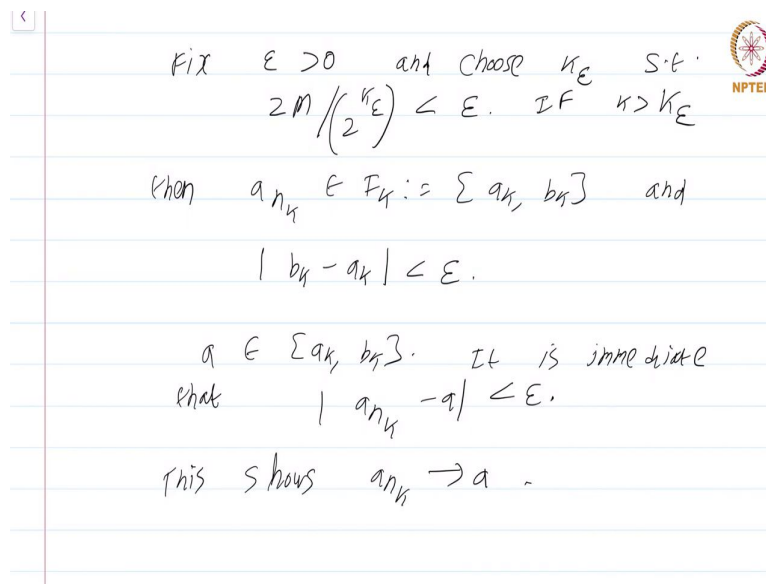 Fix ε > 0 and choose K_ε s.t.
2M/(2^{K_ε}) < ε. If K > K_ε
NPTEL
then a_{n_K} ∈ I_K := [a_K, b_K] and
| b_K - a_K | < ε.
a ∈ [a_K, b_K]. It is immediate
that | a_{n_K} - a | < ε.
This shows a_{n_K} → a .